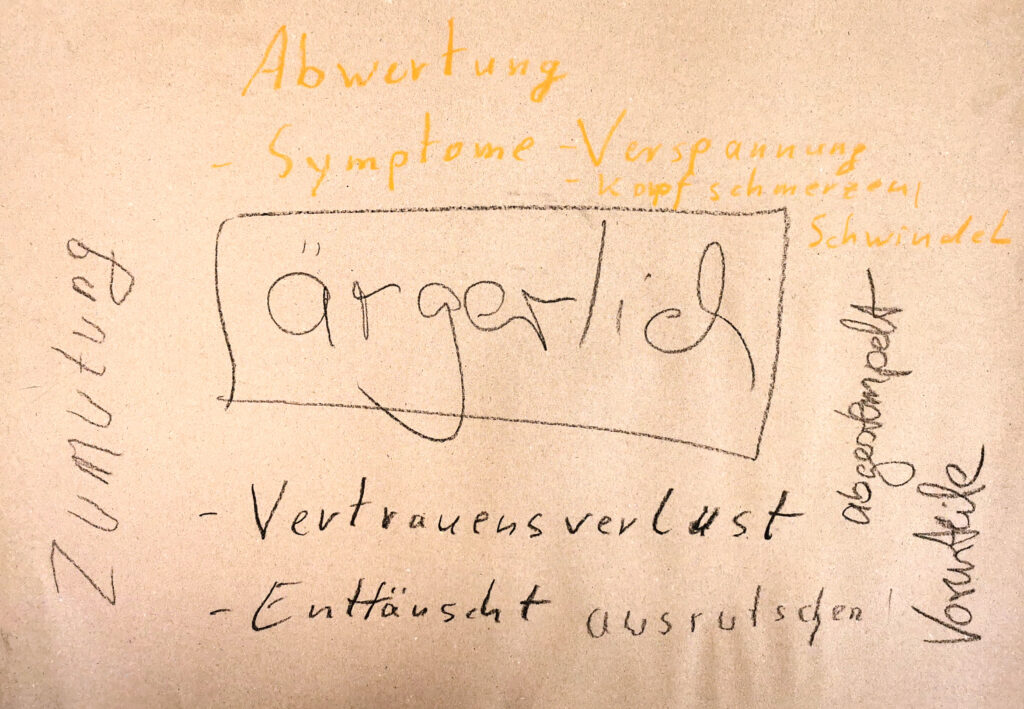 Abwertung
- Symptome - Verspannung
- Kopfschmerzen,
Schwindel
ärgerlich
Zumutung
abgestempelt
Vorurteile
- Vertrauensverlust
- Enttäuscht ausrutschen!